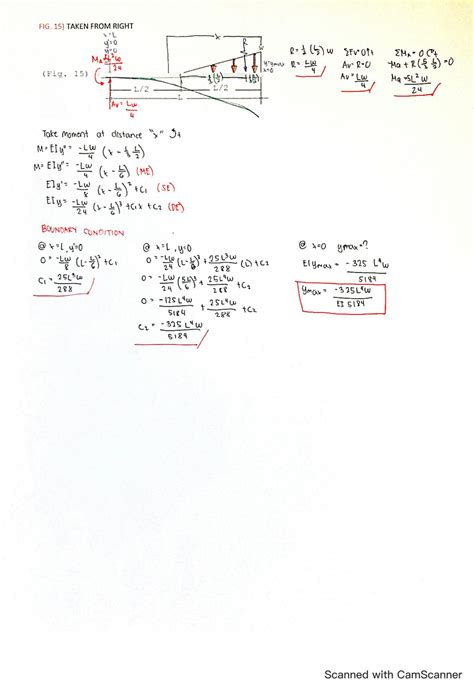 FIG. 15) TAKEN FROM RIGHT
x=L
y=0
y'=0
(Fig. 15)
x
y=ymax
x=0
L/2
L/2
L
Av = Lw/4
R = 1/2 (L/2) w
R = Lw/4
ΣFv=0↑+
Av-R=0
Av = Lw/4
ΣMA=0
-Ma + R(5/6 L)=0
Ma = 5L²w/24
Take moment at distance "x"
M = EIy'' = -Lw/4 (x - 1/3 · L/2)
M = EIy'' = -Lw/4 (x - L/6) (ME)
EIy' = -Lw/8 (x - L/6)² + C1 (SE)
EIy = -Lw/24 (x - L/6)³ + C1x + C2 (DE)
BOUNDARY CONDITION
@ x=L, y'=0
0 = -Lw/8 (L - L/6)² + C1
C1 = 25L³w/288
@ x=L, y=0
0 = -Lw/24 (L - L/6)³ + 25L³w/288 (L) + C2
0 = -Lw/24 (5L/6)³ + 25L⁴w/288 + C2
0 = -125L⁴w/5184 + 25L⁴w/288 + C2
C2 = -325L⁴w/5184
@ x=0 ymax=?
EIymax = -325 L⁴w/5184
ymax = -325L⁴w/EI 5184
Scanned with CamScanner